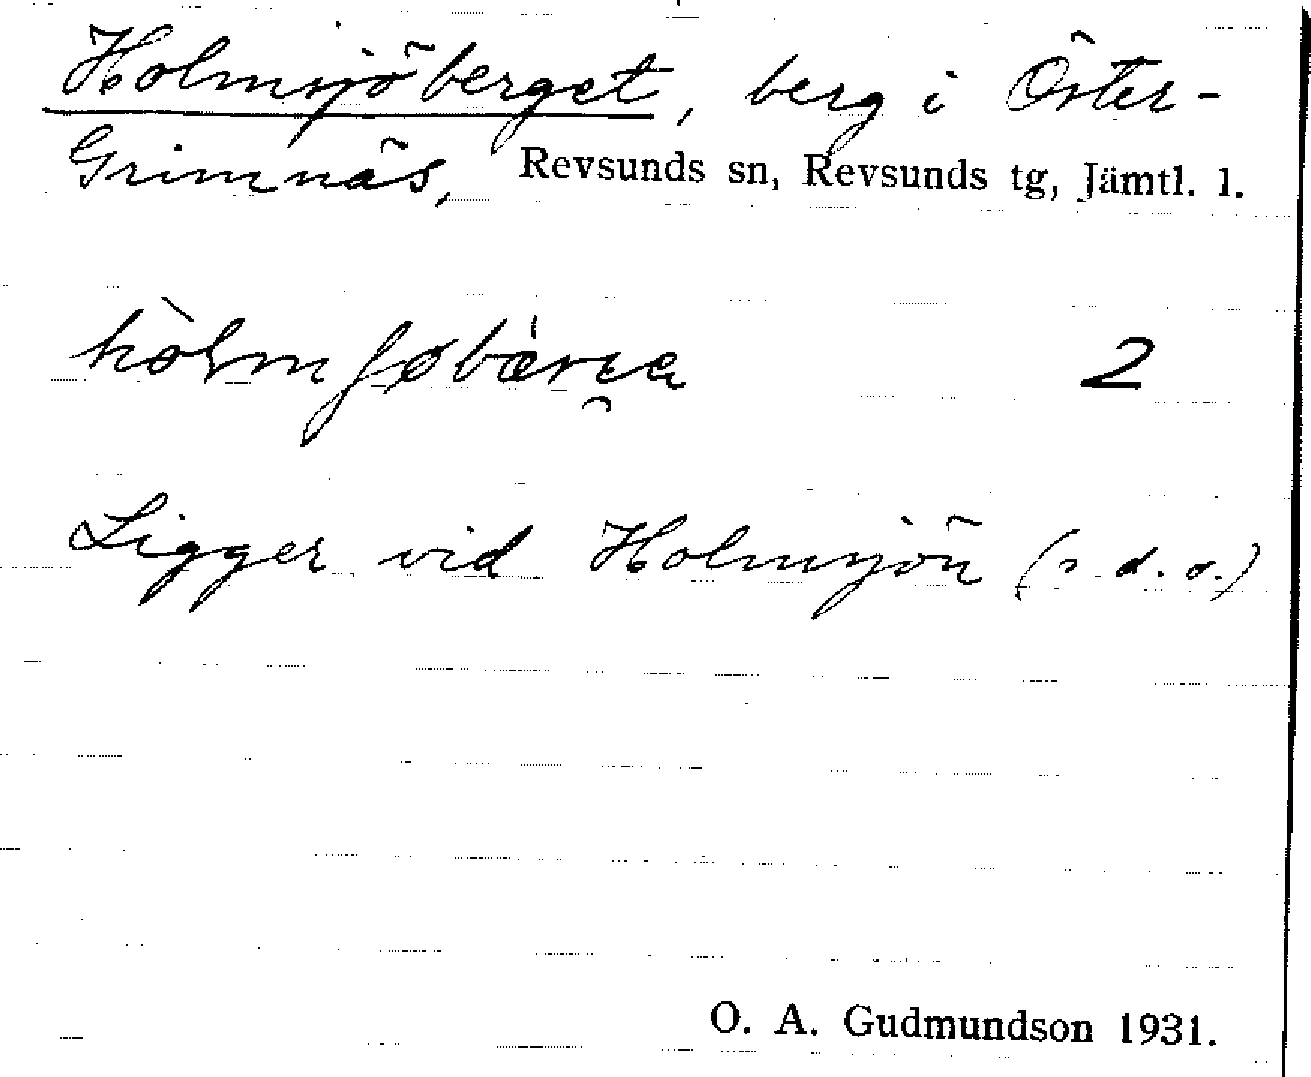 Holmsjöberget, berg i Öster-
Grimnäs, Revsunds sn, Revsunds tg, Jämtl. l.
2
Ligger vid Holmsjön (s. d. o.)
O. A. Gudmundson 1931.